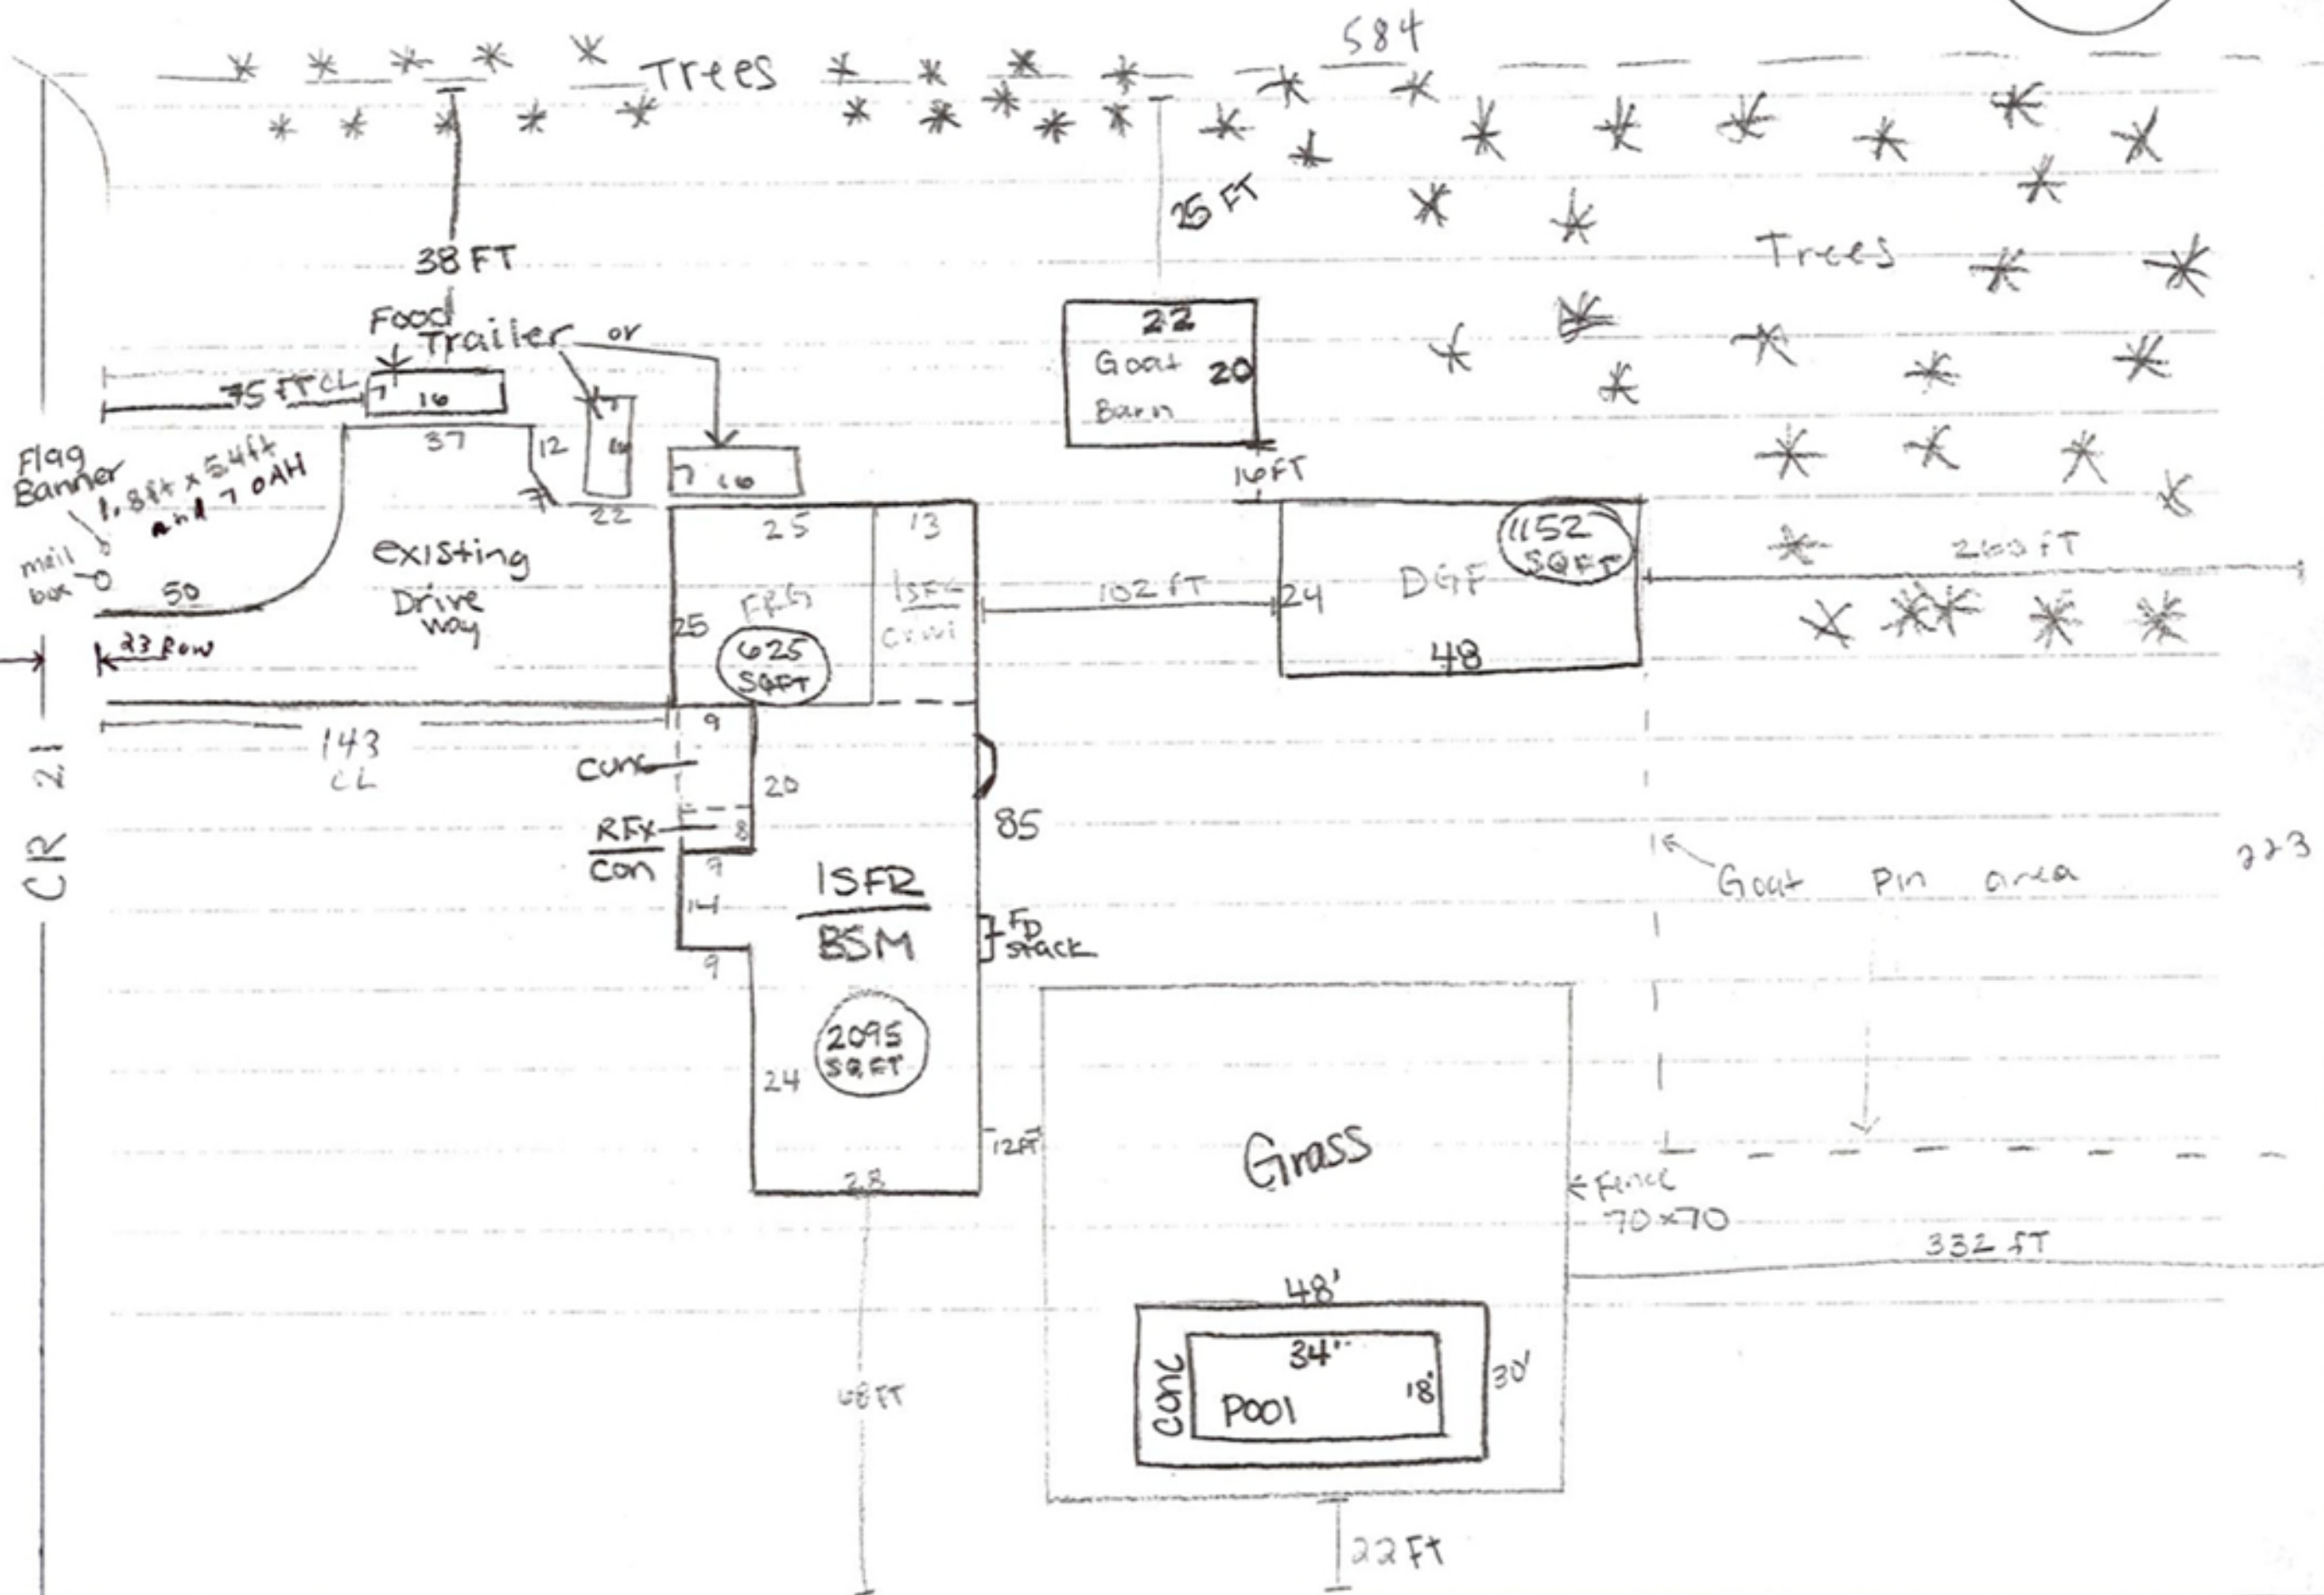 584
Trees
25 FT
38 FT
Trees
Food
Trailer or
22
Goat 20
Barn
75 FT CL
7 16
37
12
7
22
7 16
16 FT
Flag
Banner
1.8ft x 5.4ft
and 7 OAH
mail
box
50
23 ROW
existing
Drive
way
25
13
25
FRG
625
SQFT
102 FT
24
DGF
1152
SQFT
48
263 FT
143
CL
CR 21
9
Conc
20
RFX
Con
8
9
14
9
1SFR
BSM
85
FD
Stack
2095
SQ.FT
24
28
12FT
68 FT
Goat Pin area
223
Grass
Fence
70x70
332 FT
48'
34'
18'
Pool
Conc
30'
22 Ft